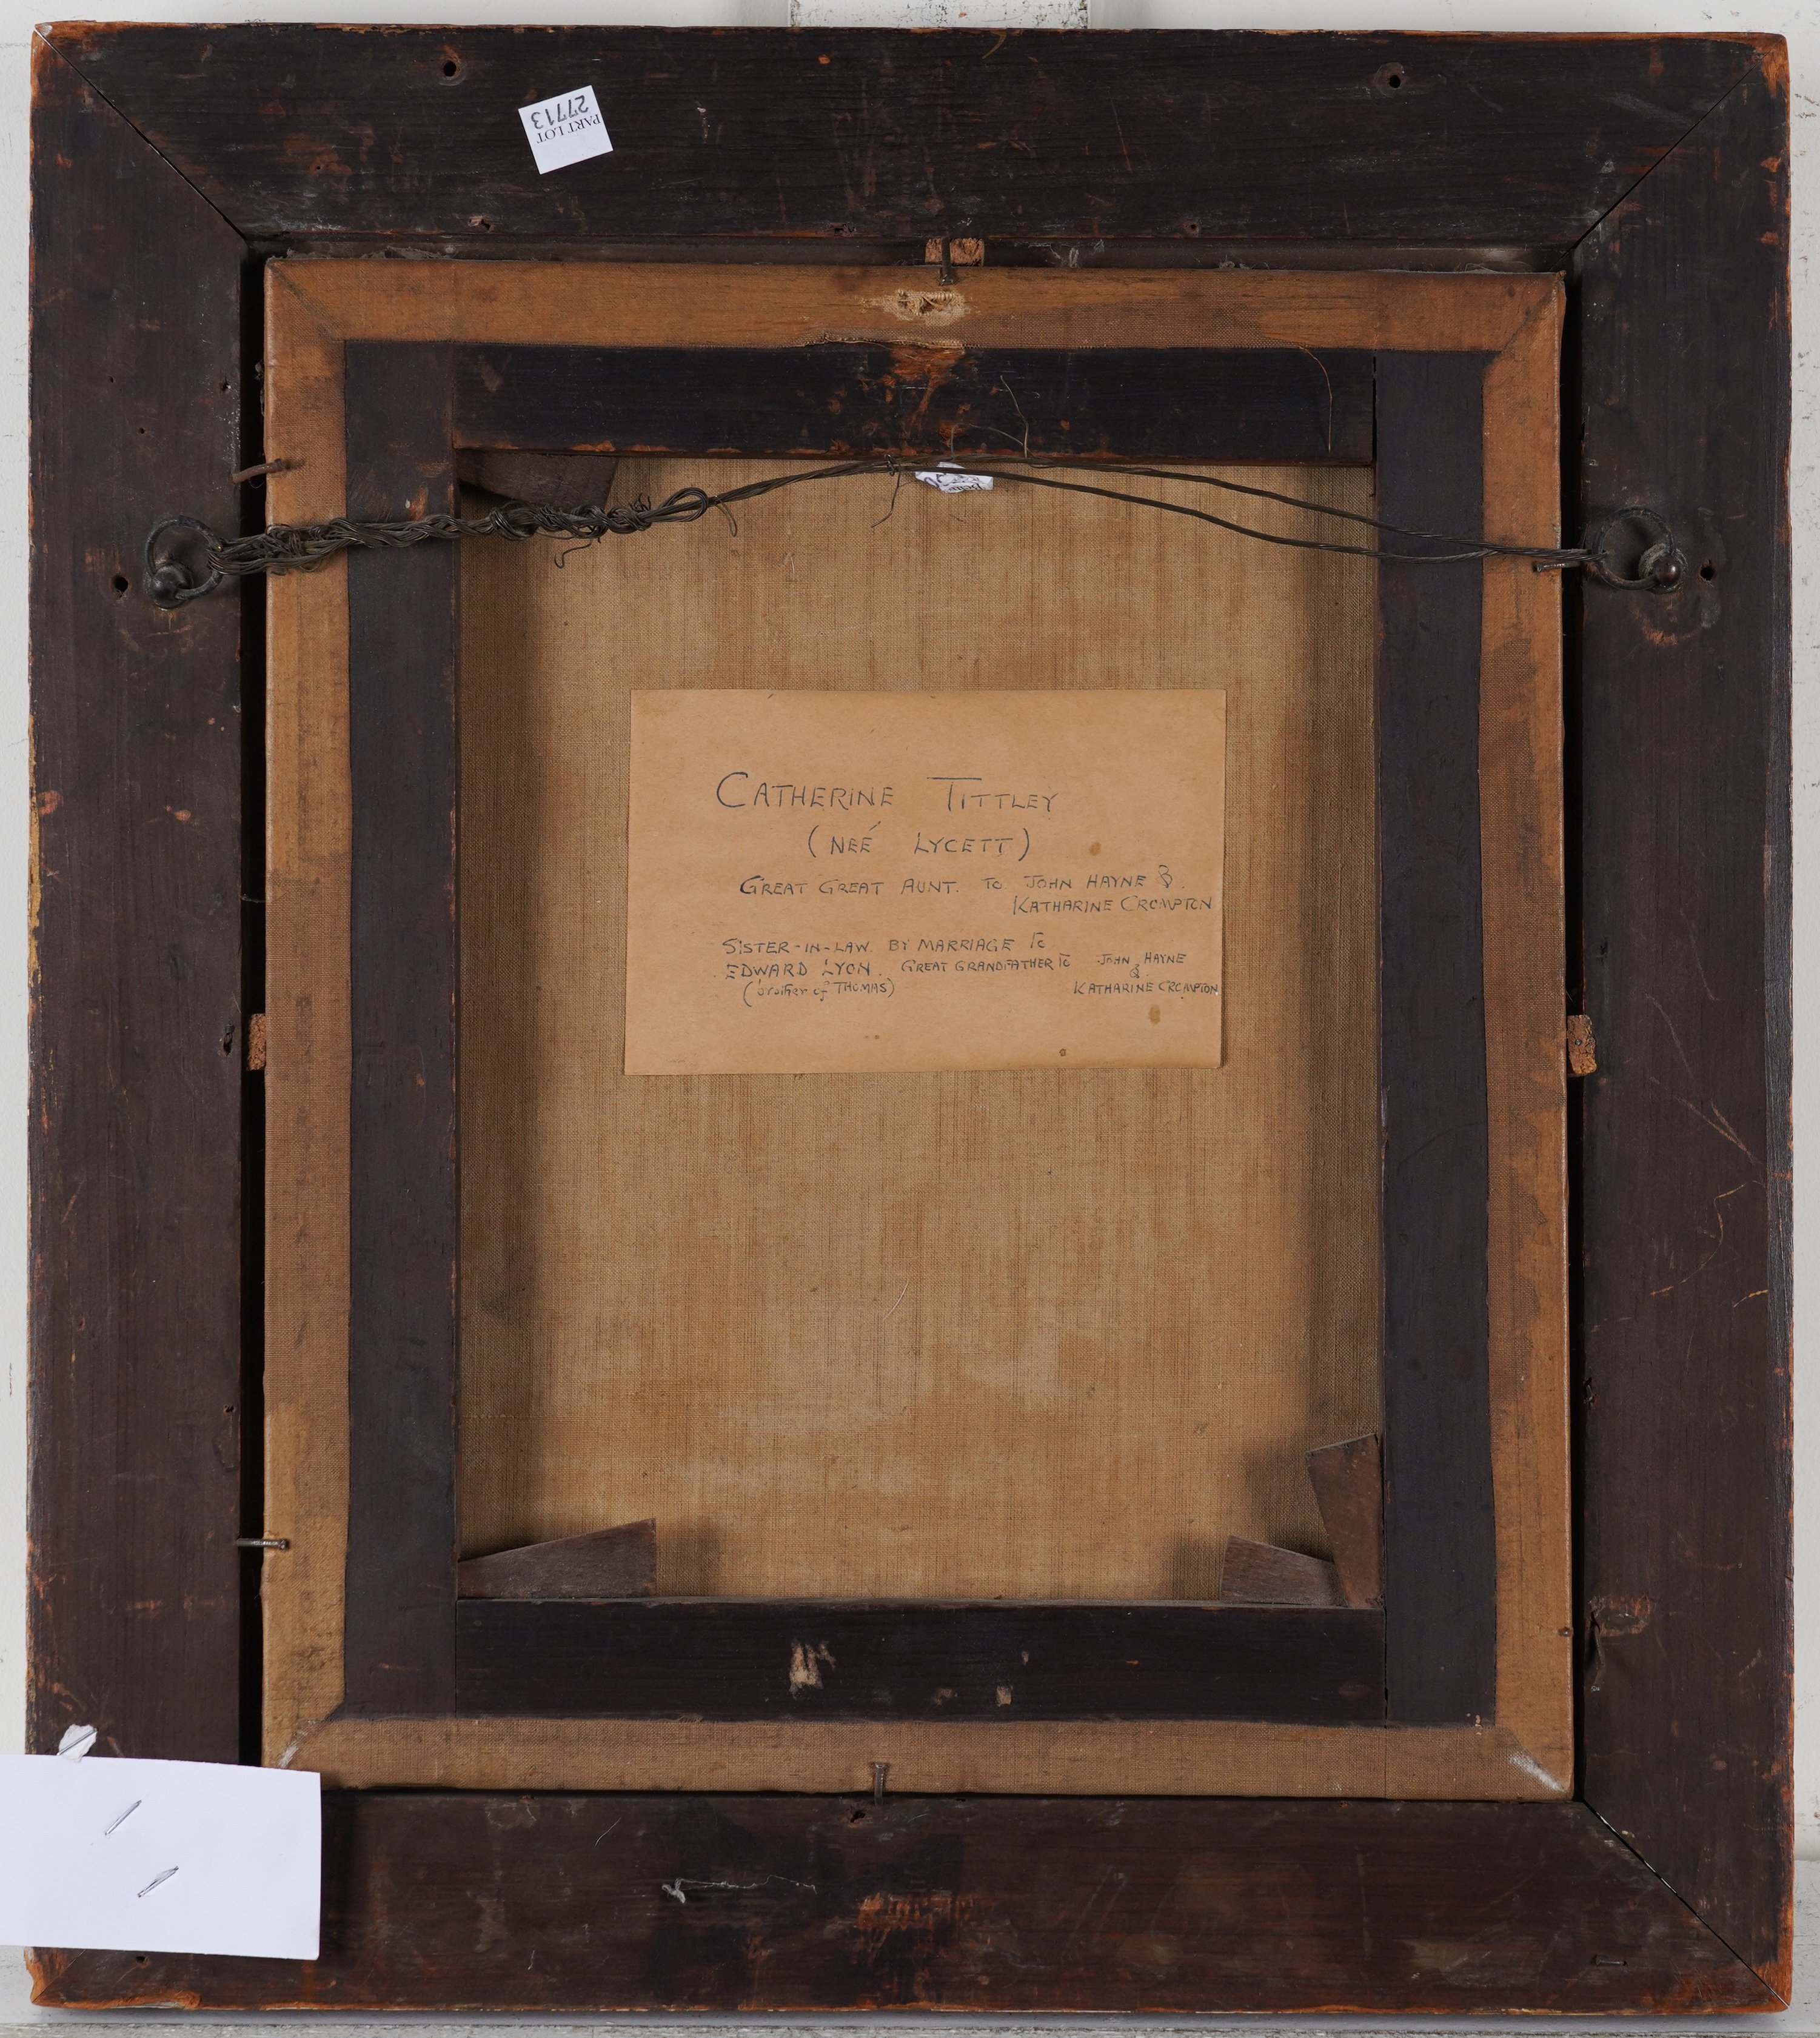 PART LOT
27713
CATHERINE TITTLEY
(NEÉ LYCETT)
GREAT GREAT AUNT. TO JOHN HAYNE &
KATHARINE CROMPTON
SISTER-IN-LAW BY MARRIAGE TO
EDWARD LYON. GREAT GRANDFATHER TO JOHN HAYNE
&
(brother of THOMAS) KATHARINE CROMPTON